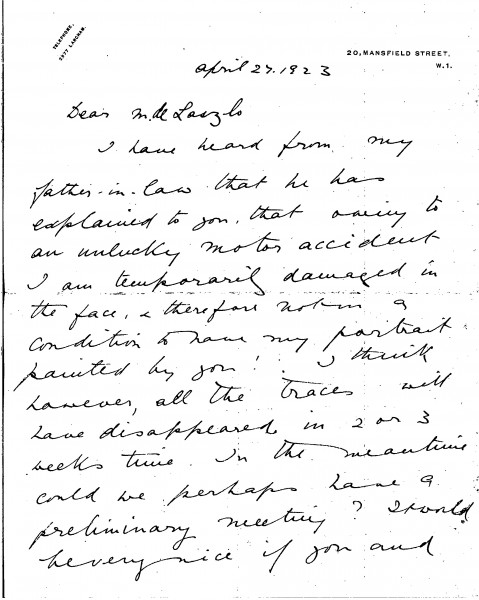 TELEPHONE,
5377 LANGHAM.
20, MANSFIELD STREET,
W.1.
April 27. 1923
Dear M. de Laszlo
I have heard from my
father-in-law that he has
explained to you, that owing to
an unlucky motor accident
I am temporarily damaged in
the face, & therefore not in a
condition to have my portrait
painted by you! I think
however, all the traces will
have disappeared in 2 or 3
weeks time. In the meantime
could we perhaps have a
preliminary meeting? It would
be very nice if you and